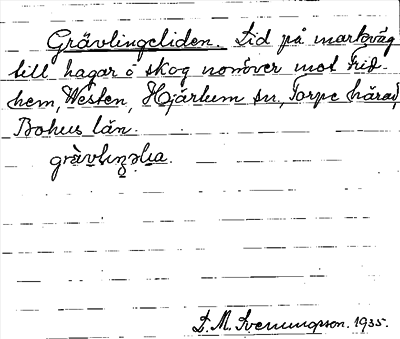 Grävlingeliden. Lid på markväg
till hagar o skog norröver mot Frid-
hem, Westen, Hjärtum sn, Torpe härad,
Bohus län.
grävlıŋəlıa.
D. M. Svenungsson. 1935.